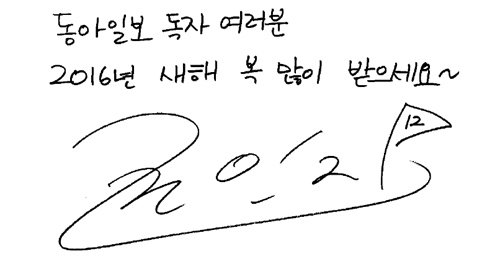 동아일보 독자 여러분
2016년 새해 복 많이 받으세요~
12